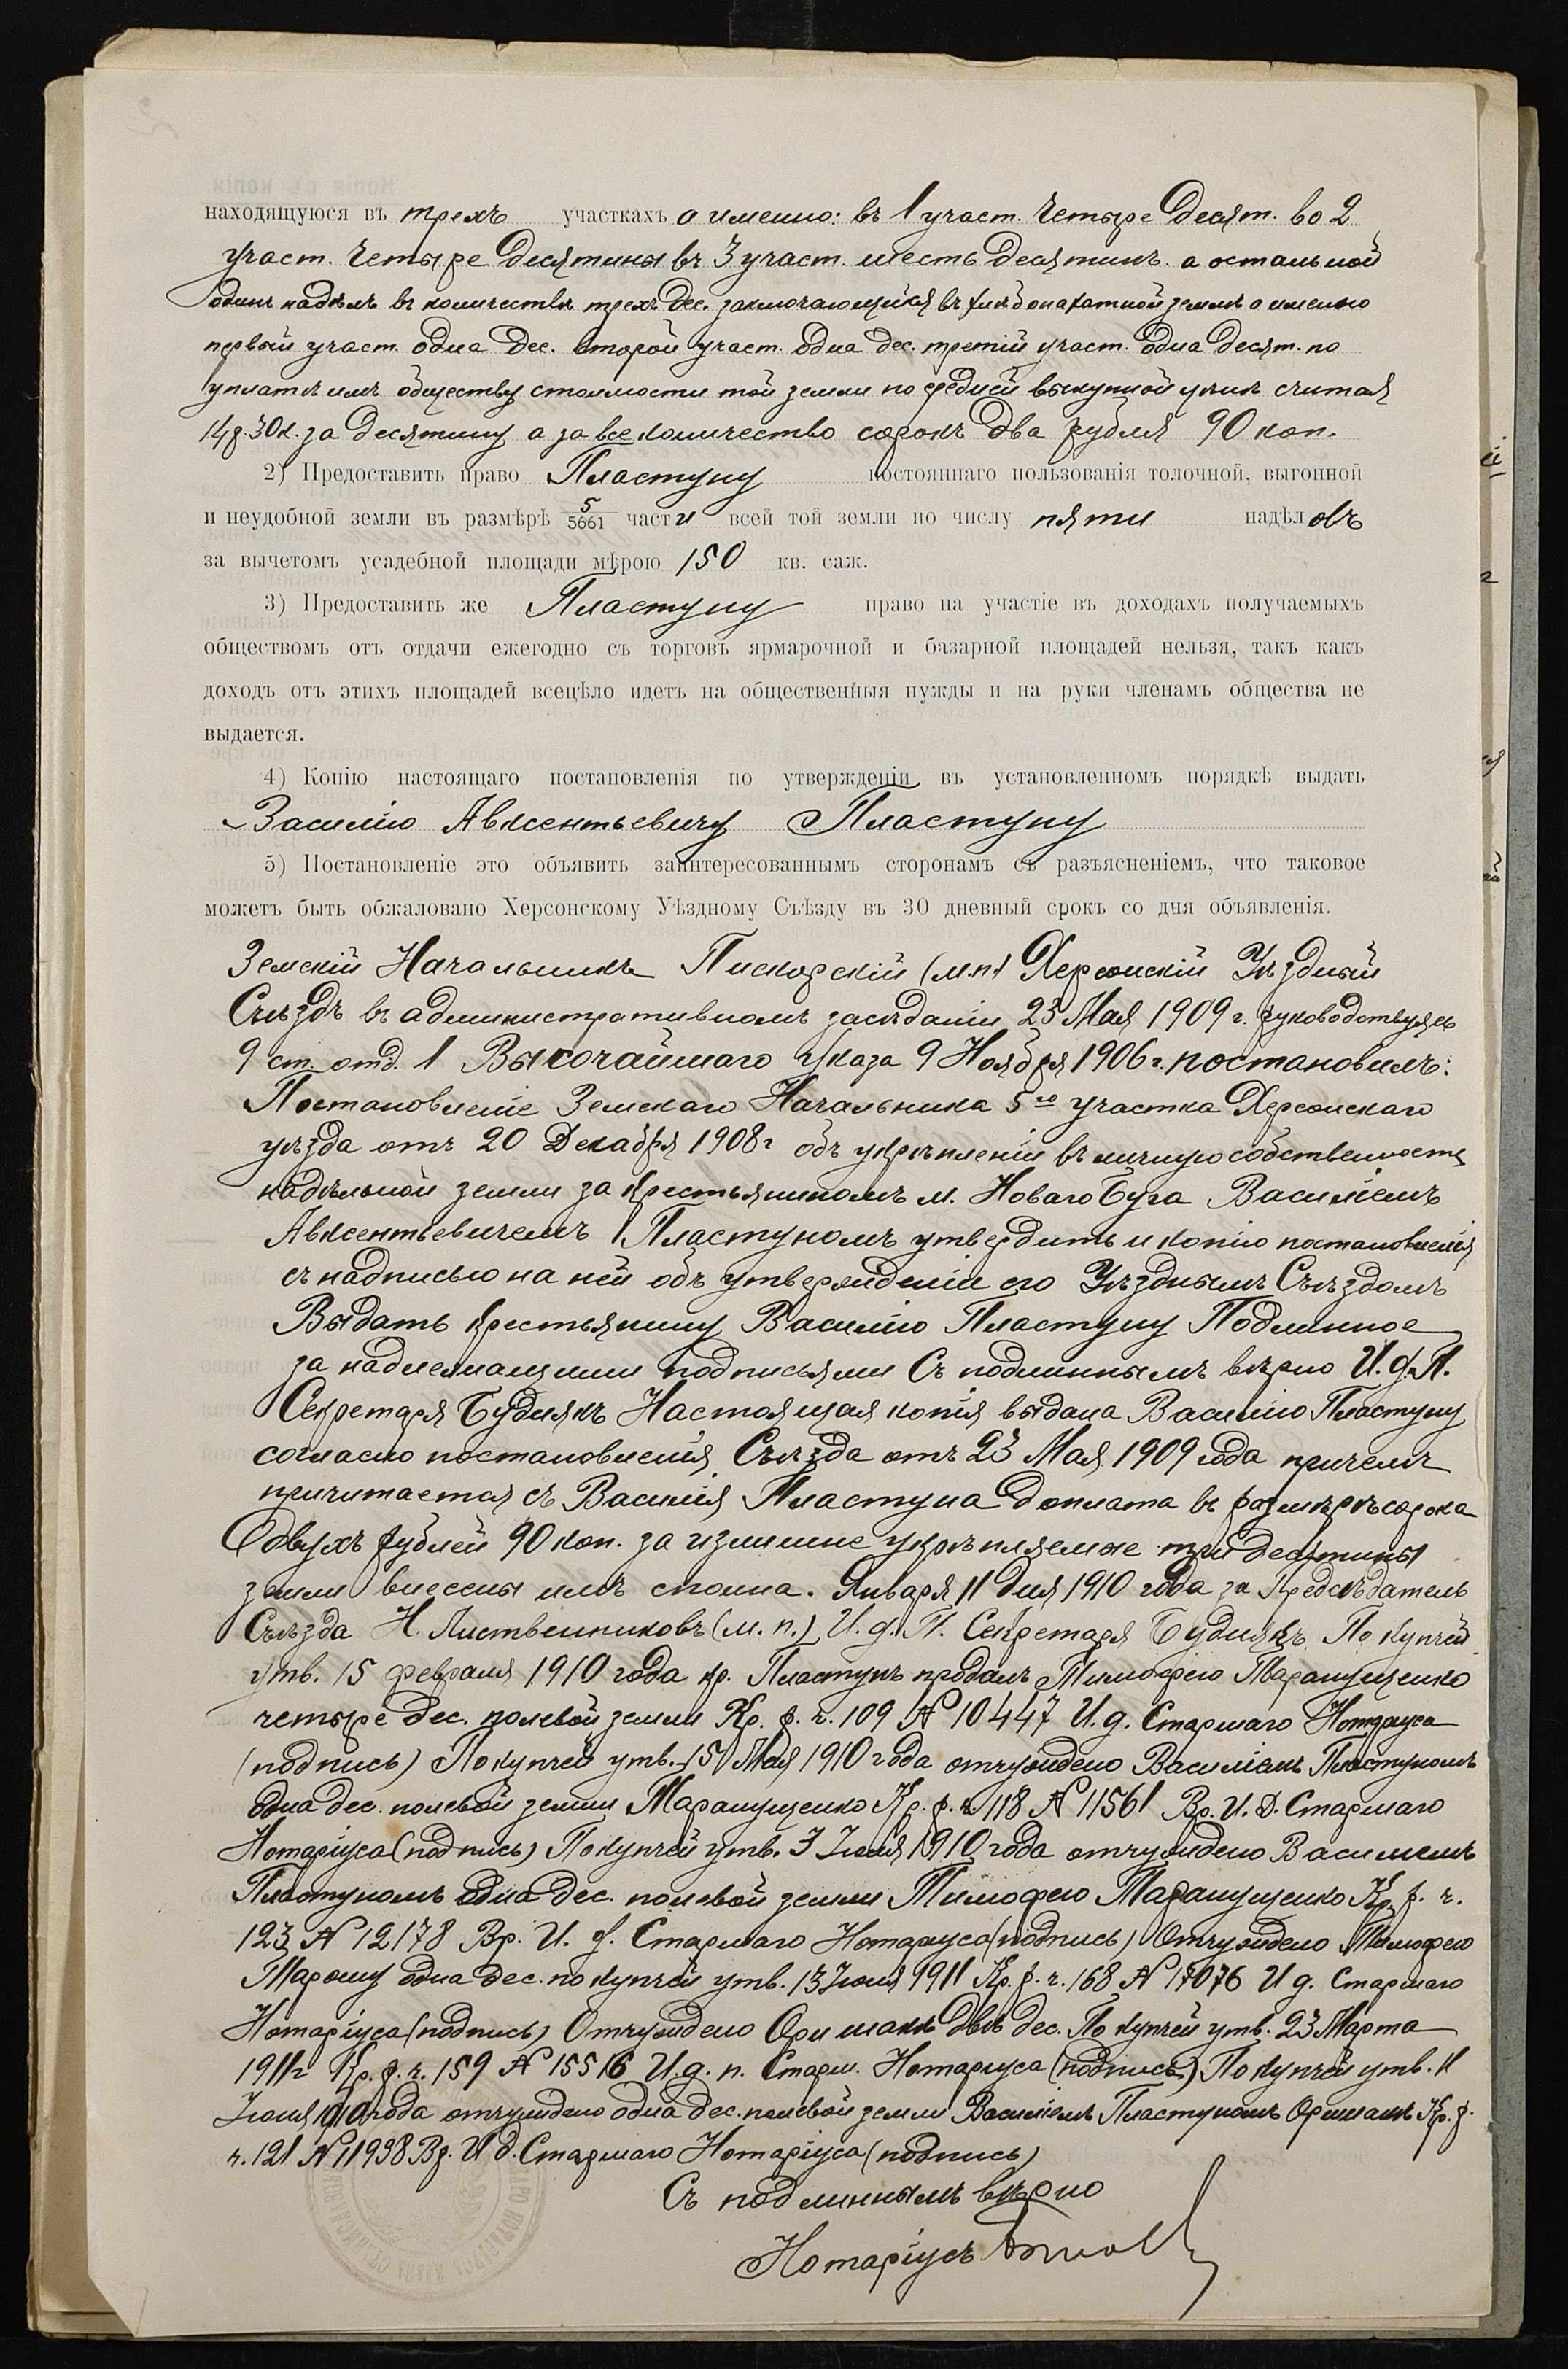 находящуюся въ трехъ участкахъ а именно: въ 1 участ. Четыре Десят. во 2
участ. Четыре Десятины въ 3 участ. шесть Десятинъ. а остальной
одинъ надѣлъ въ количествѣ трехъ Дес. заключающійся въ земле а именно
первый участ. одна Дес. второй участ. одна Дес. третій участ. одна Десят. по
уплатѣ имъ обществу стоимости той земли по средней выкупной цѣнѣ считая
14р. 30к. за десятину а за все количество сорокъ два рубля 90 коп.
2) Предоставить право Пластуну постояннаго пользованія толочной, выгонной
и неудобной земли въ размѣрѣ 5/5661 части всей той земли по числу пяти надѣловъ
за вычетомъ усадебной площади мѣрою 150 кв. саж.
3) Предоставить же Пластуну право на участіе въ доходахъ получаемыхъ
обществомъ отъ отдачи ежегодно съ торговъ ярмарочной и базарной площадей нельзя, такъ какъ
доходъ отъ этихъ площадей всецѣло идетъ на общественныя нужды и на руки членамъ общества не
выдается.
4) Копію настоящаго постановленія по утвержденіи въ установленномъ порядкѣ выдать
Василію Авксентьевичу Пластуну
5) Постановленіе это объявить заинтересованнымъ сторонамъ съ разъясненіемъ, что таковое
можетъ быть обжаловано Херсонскому Уѣздному Съѣзду въ 30 дневный срокъ со дня объявленія.
Земскій Начальникъ Пискорскій (м.п.) Херсонскій Уѣздный
Съѣздъ въ административномъ засѣданіи 23 Мая 1909 г. руководствуясь
9 ст. отд. 1 Высочайшаго Указа 9 Ноября 1906 г. постановилъ:
Постановленіе Земскаго Начальника 5го участка Херсонскаго
уѣзда отъ 20 Декабря 1908 г объ укрѣпленіи въ личную собственность
надѣльной земли за крестьяниномъ м. Новаго Буга Василіемъ
Авксентьевичемъ Пластуномъ утвердить и копію постановленія
съ надписью на ней объ утвержденіи его Уѣзднымъ Съѣздомъ
Выдать крестьянину Василію Пластуну Подлинное
за надлежащими подписями Съ подлиннымъ вѣрно И. д. П.
Секретаря Будякъ Настоящая копія выдана Василію Пластуну
согласно постановленія Съѣзда отъ 23 Мая 1909 года причемъ
причитается съ Василія Пластуна доплата въ размѣрѣ сорока
двухъ рублей 90 коп. за излишне укрѣпляемые три десятины
земли внесены имъ сполна. Января 11 дня 1910 года за Предсѣдатель
Съѣзда Н. Лиственниковъ (м. п.) И. д. П. Секретаря Будякъ. По купчей
утв. 15 февраля 1910 года кр. Пластунъ продалъ Тимофею Таранущенко
четыре дес. полевой земли Кр. р. ч. 109 № 10447 И. д. Старшаго Нотаріуса
(подпись) По купчей утв. 15 Мая 1910 года отчуждено Василіемъ Пластуномъ
одна дес. полевой земли Таранущенко Кр. р. ч 118 № 11561 Вр. И. Д. Старшаго
Нотаріуса (подпись) По купчей утв. 3 Іюля 1910 года отчуждено Василіемъ
Пластуномъ одна дес. полевой земли Тимофею Таранущенко Кр. р. ч.
123 № 12178 Вр. И. д. Старшаго Нотаріуса (подпись) Отчуждено Тимофею
одна дес. по купчей утв. 13 Іюля 1911 Кр. р. ч. 168 № 17076 И д. Старшаго
Нотаріуса (подпись) Отчуждено двѣ дес. По купчей утв. 23 Марта
1911г Кр. р. ч. 159 № 15516 И. д. п. Старш. Нотаріуса (подпись) По купчей утв. 11
1910 года отчуждено одна дес. полевой земли Василіемъ Пластуномъ Кр. р.
ч. 121 № 11938 Вр. И д. Старшаго Нотаріуса (подпись)
Съ подлиннымъ вѣрно
Нотаріусъ